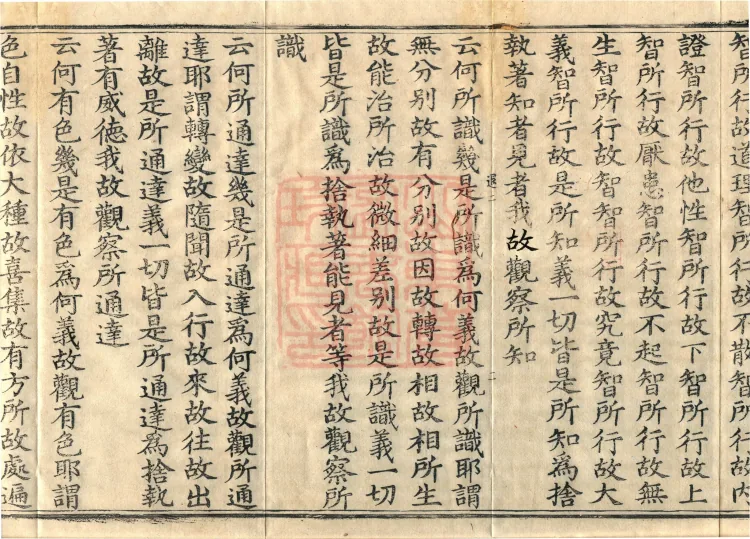 智所行故道理智所行故不散智所行故内
證智所行故他性智所行故下智所行故上
智所行故厭患智所行故不起智所行故無
生智所行故智智所行故究竟智所行故大
義智所行故是所知義一切皆是所知爲捨
執著知者見者我故觀察所知
云何所識幾是所識爲何義故觀所識耶謂
無分别故有分别故因故轉故相故相所生
故能治所治故微細差别故是所識義一切
皆是所識爲捨執著能見者等我故觀察所
識
云何所通達幾是所通達爲何義故觀所通
達耶謂轉變故隨聞故入行故來故往故出
離故是所通達義一切皆是所通達爲捨執
著有威德我故觀察所通達
云何有色幾是有色爲何義故觀有色耶謂
色自性故依大種故喜集故有方所故處遍